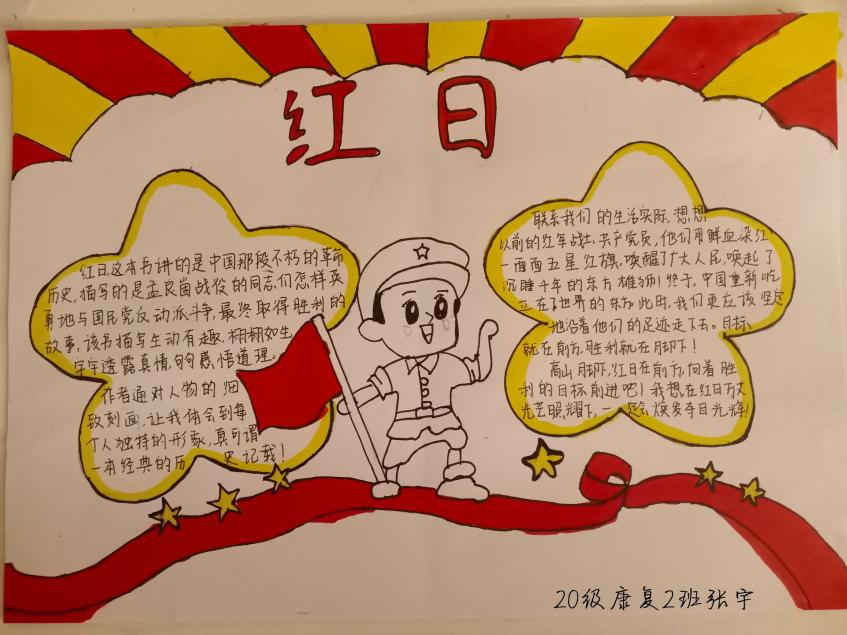 红日
红日这本书讲的是中国那段不朽的革命
历史,描写的是孟良崮战役的同志们怎样英
勇地与国民党反动派斗争,最终取得胜利的
故事,该书描写生动有趣,栩栩如生
字字透露真情,句句感悟道理。
作者通对人物的细
致刻画,让我体会到每
个人独特的形象,真可谓
一本经典的历史记载!
联系我们的生活实际,想想
以前的红军战士,共产党员,他们用鲜血染红
一面面五星红旗,唤醒了广大人民,唤起了
沉睡千年的东方雄狮!终于,中国重新屹
立在了世界的东方。此时,我们更应该坚定
地沿着他们的足迹走下去。目标
就在前方,胜利就在脚下!
高山脚下,红日在前方,向着胜
利的目标前进吧!我想在红日万丈
光芒照耀下,一定会焕发夺目光辉!
20级康复2班张宇